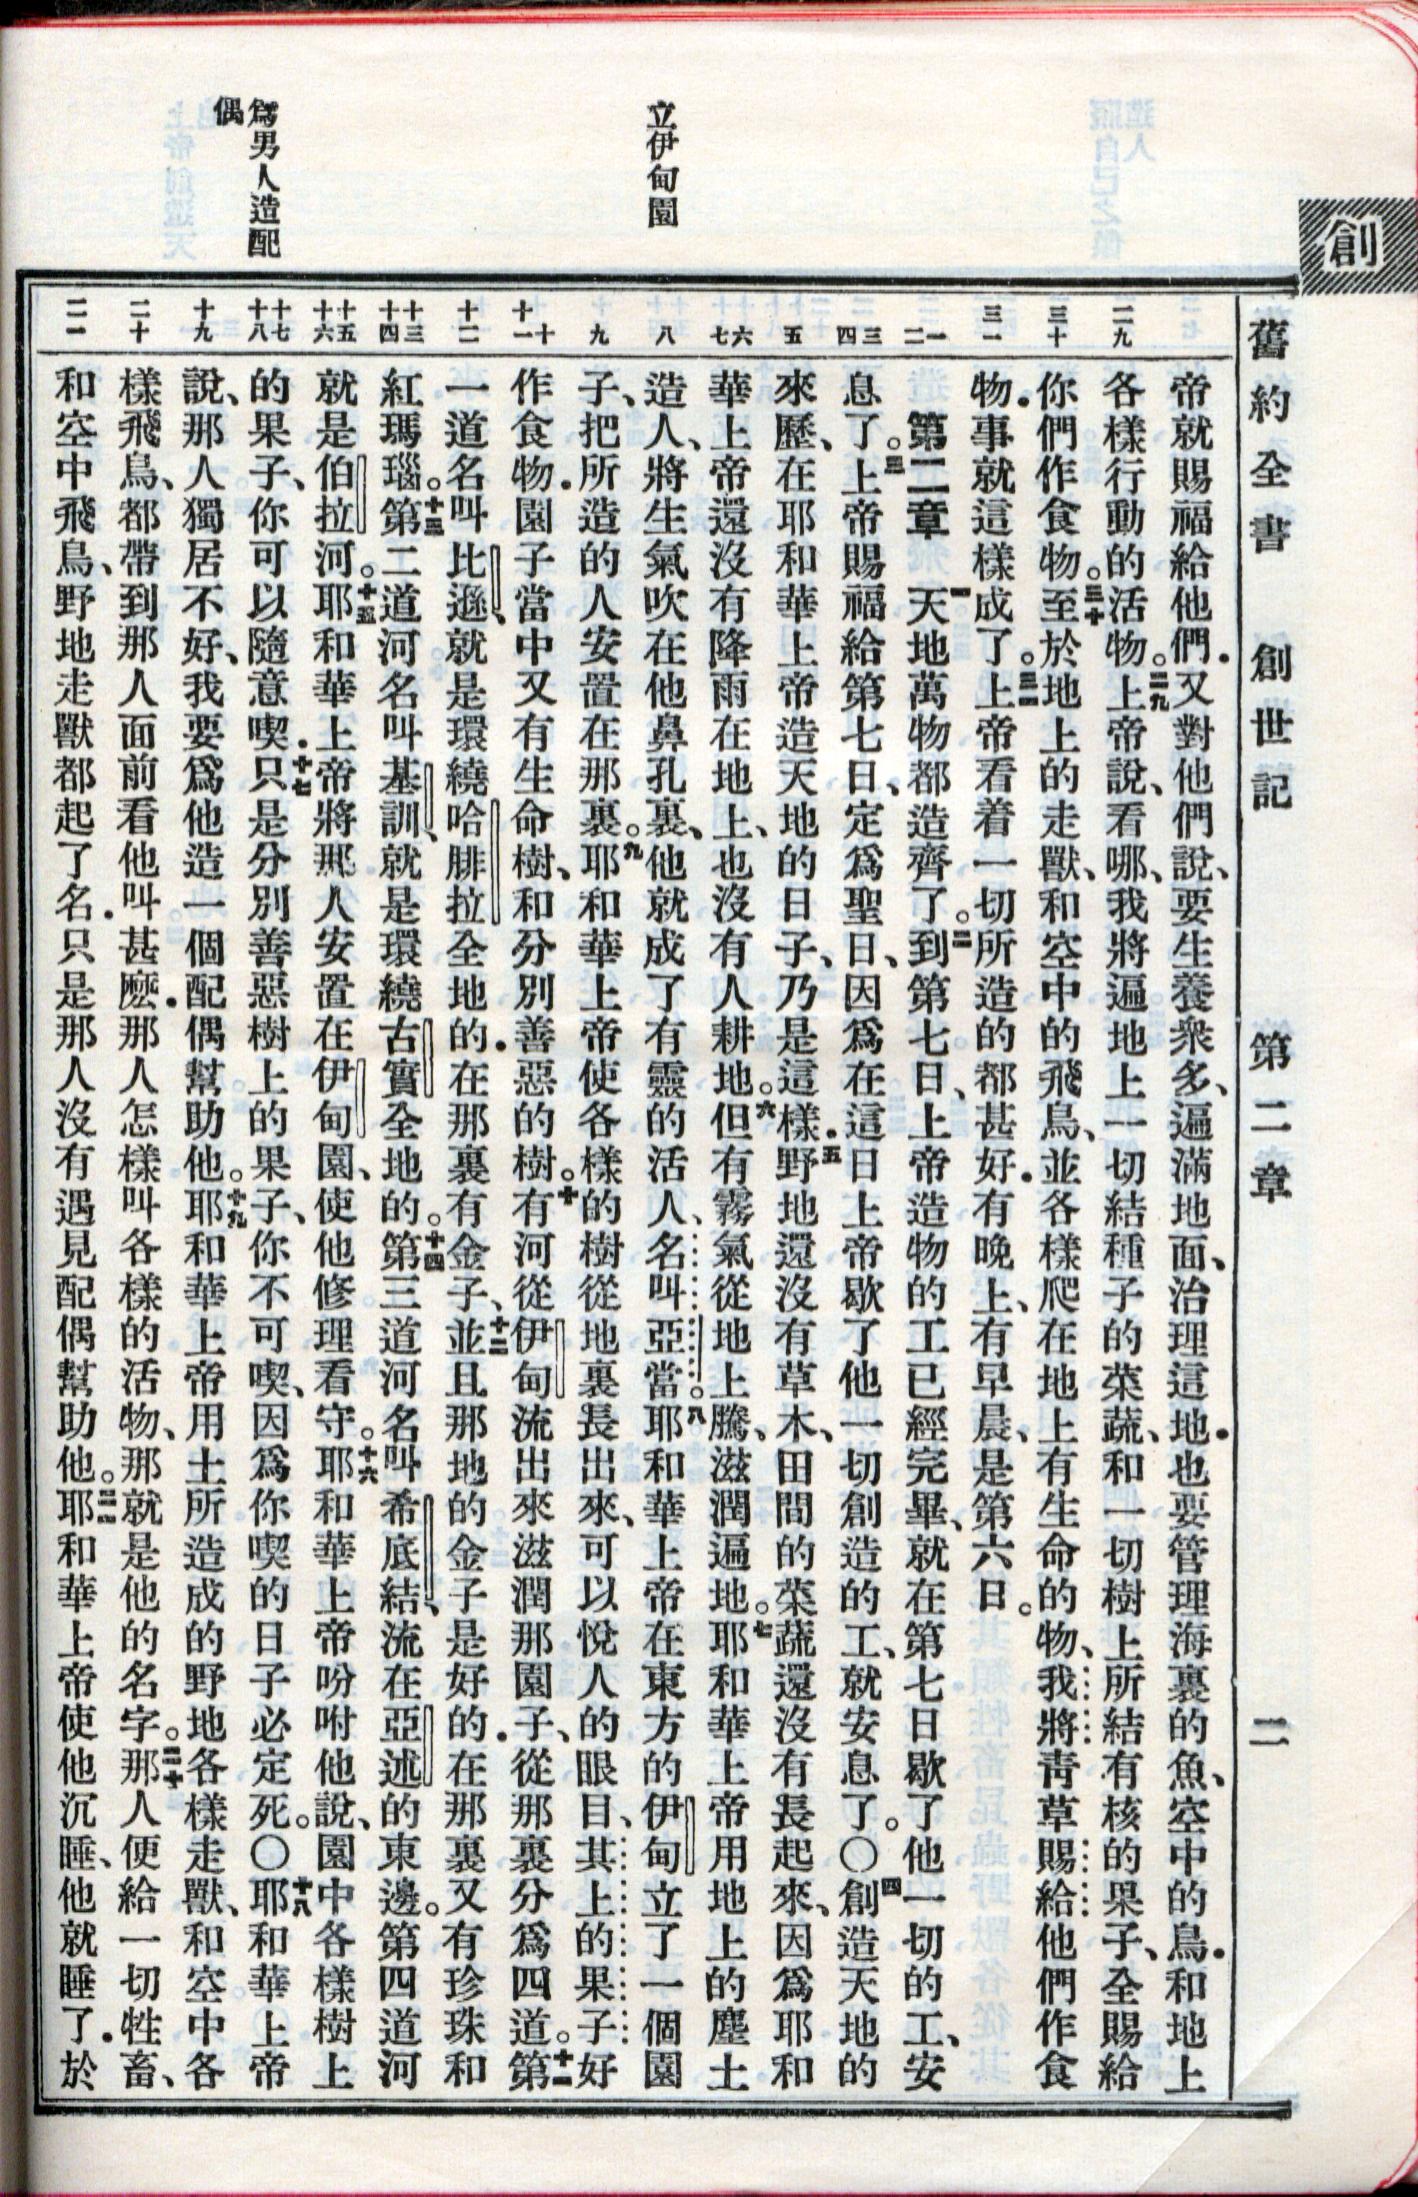 創
舊約全書 創世記 第二章 二
立伊甸園
爲男人造配
偶
二九
三十
三一
一
二
三
四
五
六
七
八
九
十
十一
十二
十三
十四
十五
十六
十七
十八
十九
二十
二一
帝就賜福給他們．又對他們說、要生養衆多、遍滿地面、治理這地．也要管理海裏的魚、空中的鳥．和地上
各樣行動的活物。二九上帝說、看哪、我將遍地上一切結種子的菜蔬、和一切樹上所結有核的果子、全賜給
你們作食物。三十至於地上的走獸、和空中的飛鳥、並各樣爬在地上有生命的物、我將靑草賜給他們作食
物．事就這樣成了。三一上帝看着一切所造的都甚好．有晚上、有早晨、是第六日。
第二章 一天地萬物都造齊了。二到第七日、上帝造物的工已經完畢、就在第七日歇了他一切的工、安
息了。三上帝賜福給第七日、定爲聖日、因爲在這日上帝歇了他一切創造的工、就安息了。〇四創造天地的
來歷、在耶和華上帝造天地的日子、乃是這樣．五野地還沒有草木、田間的菜蔬還沒有長起來、因爲耶和
華上帝還沒有降雨在地上、也沒有人耕地。六但有霧氣從地上騰、滋潤遍地。七耶和華上帝用地上的塵土
造人、將生氣吹在他鼻孔裏、他就成了有靈的活人、名叫亞當。八耶和華上帝在東方的伊甸立了一個園
子、把所造的人安置在那裏。九耶和華上帝使各樣的樹從地裏長出來、可以悅人的眼目、其上的果子好
作食物．園子當中又有生命樹、和分別善惡的樹。十有河從伊甸流出來滋潤那園子、從那裏分爲四道。十一第
一道名叫比遜、就是環繞哈腓拉全地的．在那裏有金子、十二並且那地的金子是好的．在那裏又有珍珠和
紅瑪瑙。十三第二道河名叫基訓、就是環繞古實全地的。十四第三道河名叫希底結、流在亞述的東邊。第四道河
就是伯拉河。十五耶和華上帝將那人安置在伊甸園、使他修理看守。十六耶和華上帝吩咐他說、園中各樣樹上
的果子、你可以隨意喫．十七只是分別善惡樹上的果子、你不可喫、因爲你喫的日子必定死。〇十八耶和華上帝
說、那人獨居不好、我要爲他造一個配偶幫助他。十九耶和華上帝用土所造成的野地各樣走獸、和空中各
樣飛鳥、都帶到那人面前看他叫甚麼．那人怎樣叫各樣的活物、那就是他的名字。二十那人便給一切牲畜、
和空中飛鳥、野地走獸都起了名．只是那人沒有遇見配偶幫助他。二一耶和華上帝使他沉睡、他就睡了．於